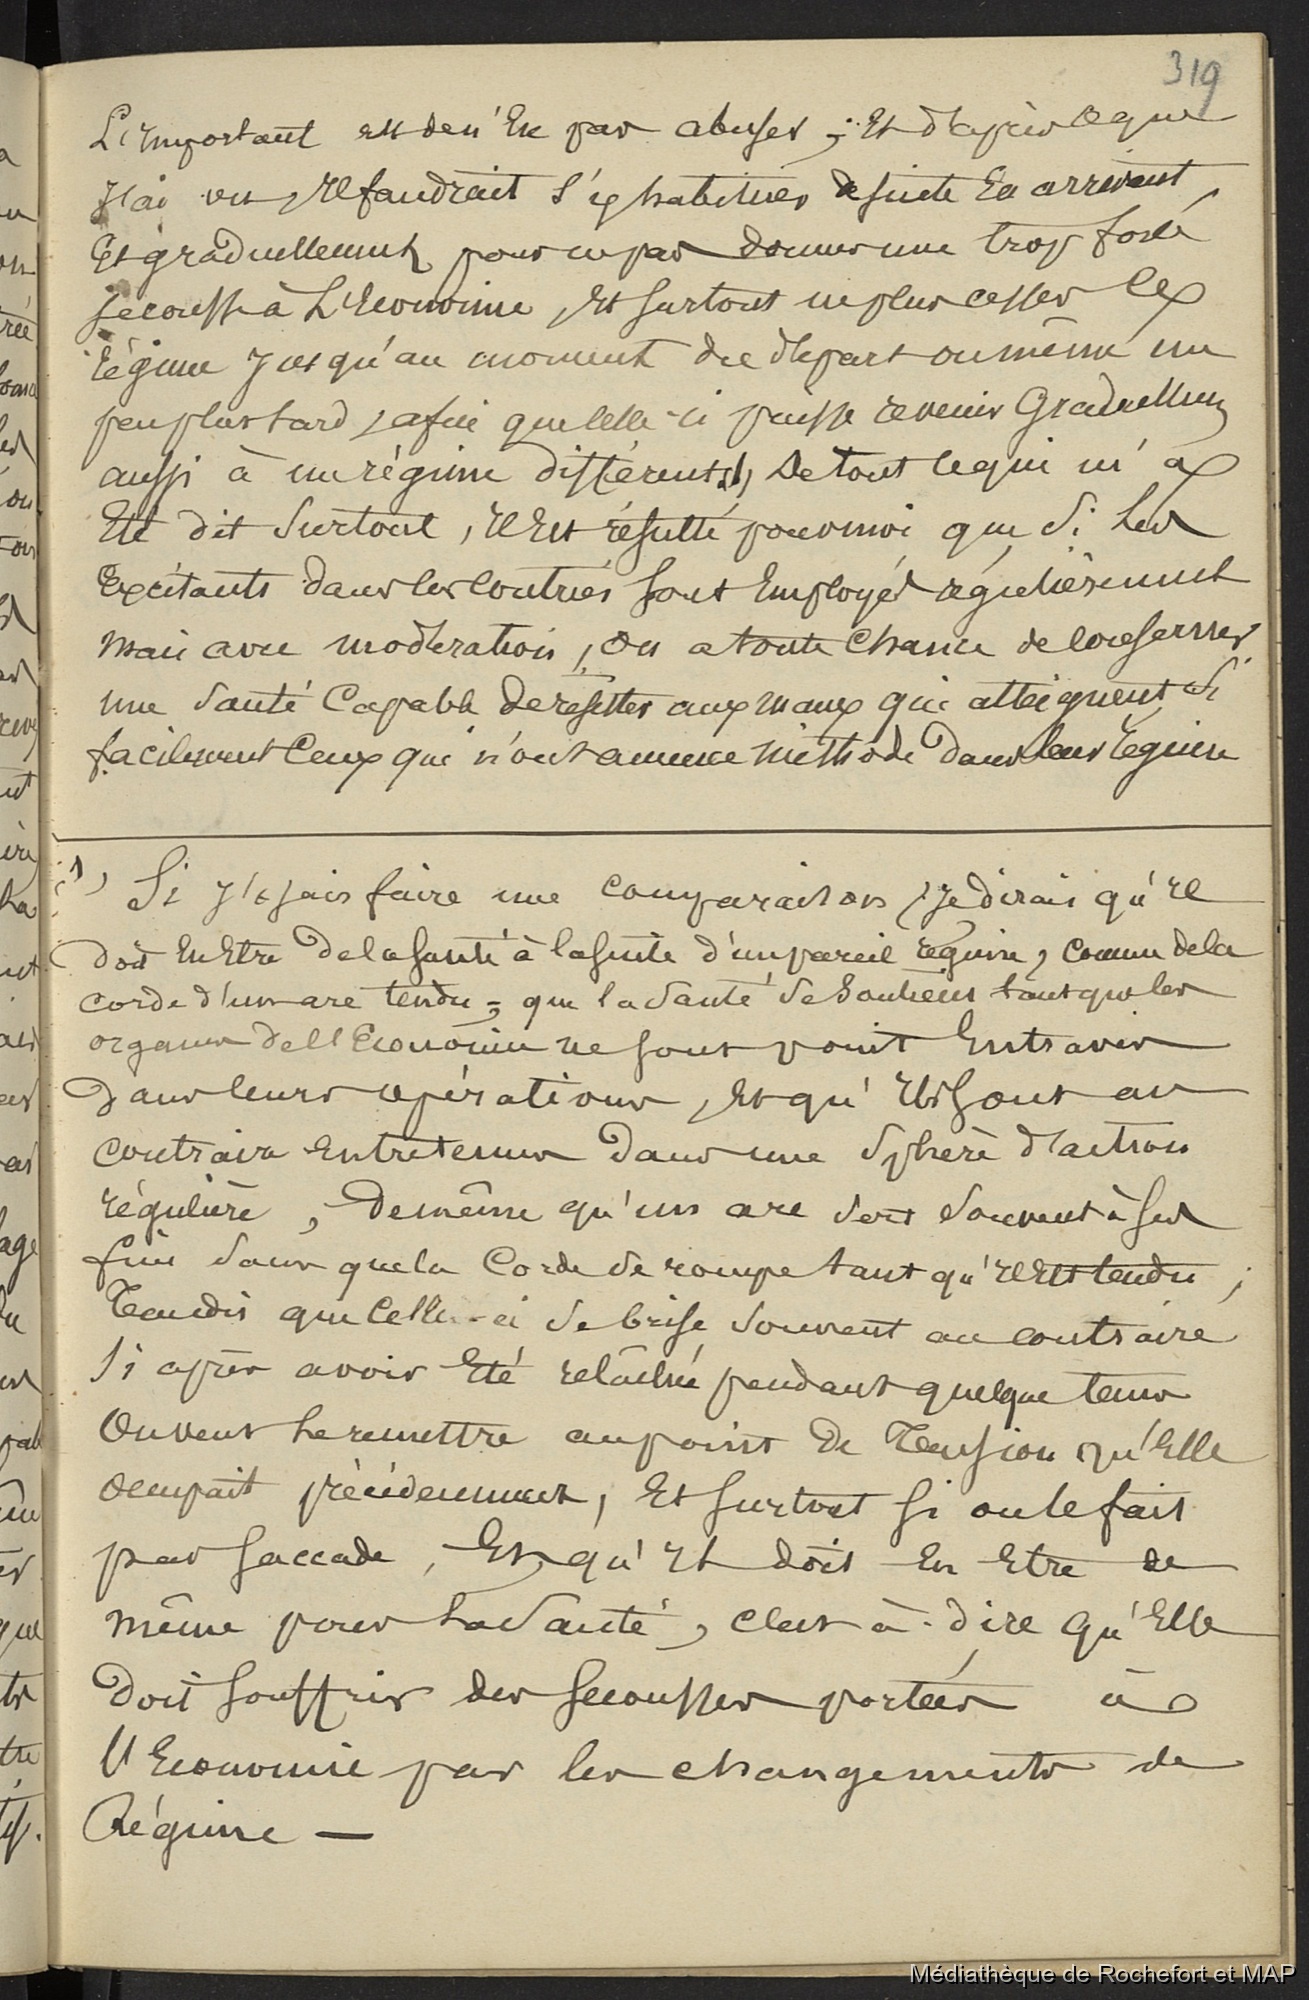 319
L'important est de n'En pas abuser ; Et d'après ce que
j'ai vu, Il faudrait s'y habituer de suite En arrivant,
Et graduellement pour ne pas donner une trop forte
secousse à L'Economie, Et surtout ne plus cesser ce
régime jusqu'au moment du départ ou même un
peu plus tard, afin que celle-ci puisse revenir Graduellement
aussi à un régime différent (1), De tout ce qui m'a
Eté dit surtout, Il Est résulté pour moi que si Les
Excitants dans les contrées sont Employés régulièrement
mais avec modération, On a toute Chance de conserver
une santé Capable de résister aux maux qui atteignent si
facilement Ceux qui n'ont aucune méthode dans leur régime
(1) Si j'osais faire une comparaison, je dirais qu'il
doit En Etre de la santé à la suite d'un pareil régime, comme de la
corde d'un arc tendu ; que la santé se soutient tant que les
organes de l'Economie ne sont point Entravés
dans leurs opérations, Et qu'Ils sont au
contraire Entretenus dans une sphère d'action
régulière, De même qu'un arc sert souvent à ses
fins sans que la Corde se rompe tant qu'Il Est tendu ;
Tandis que Celle-ci se brise souvent au contraire
si après avoir Eté relâchée pendant quelque tems
On veut La remettre au point de Tension qu'Elle
occupait précédemment, Et surtout si on le fait
par saccade, Et qu'Il doit En Etre de
même pour La Santé, c'est à-dire qu'Elle
doit souffrir des secousses portées à
l'Economie par les changements de
Régime —
Médiathèque de Rochefort et MAP